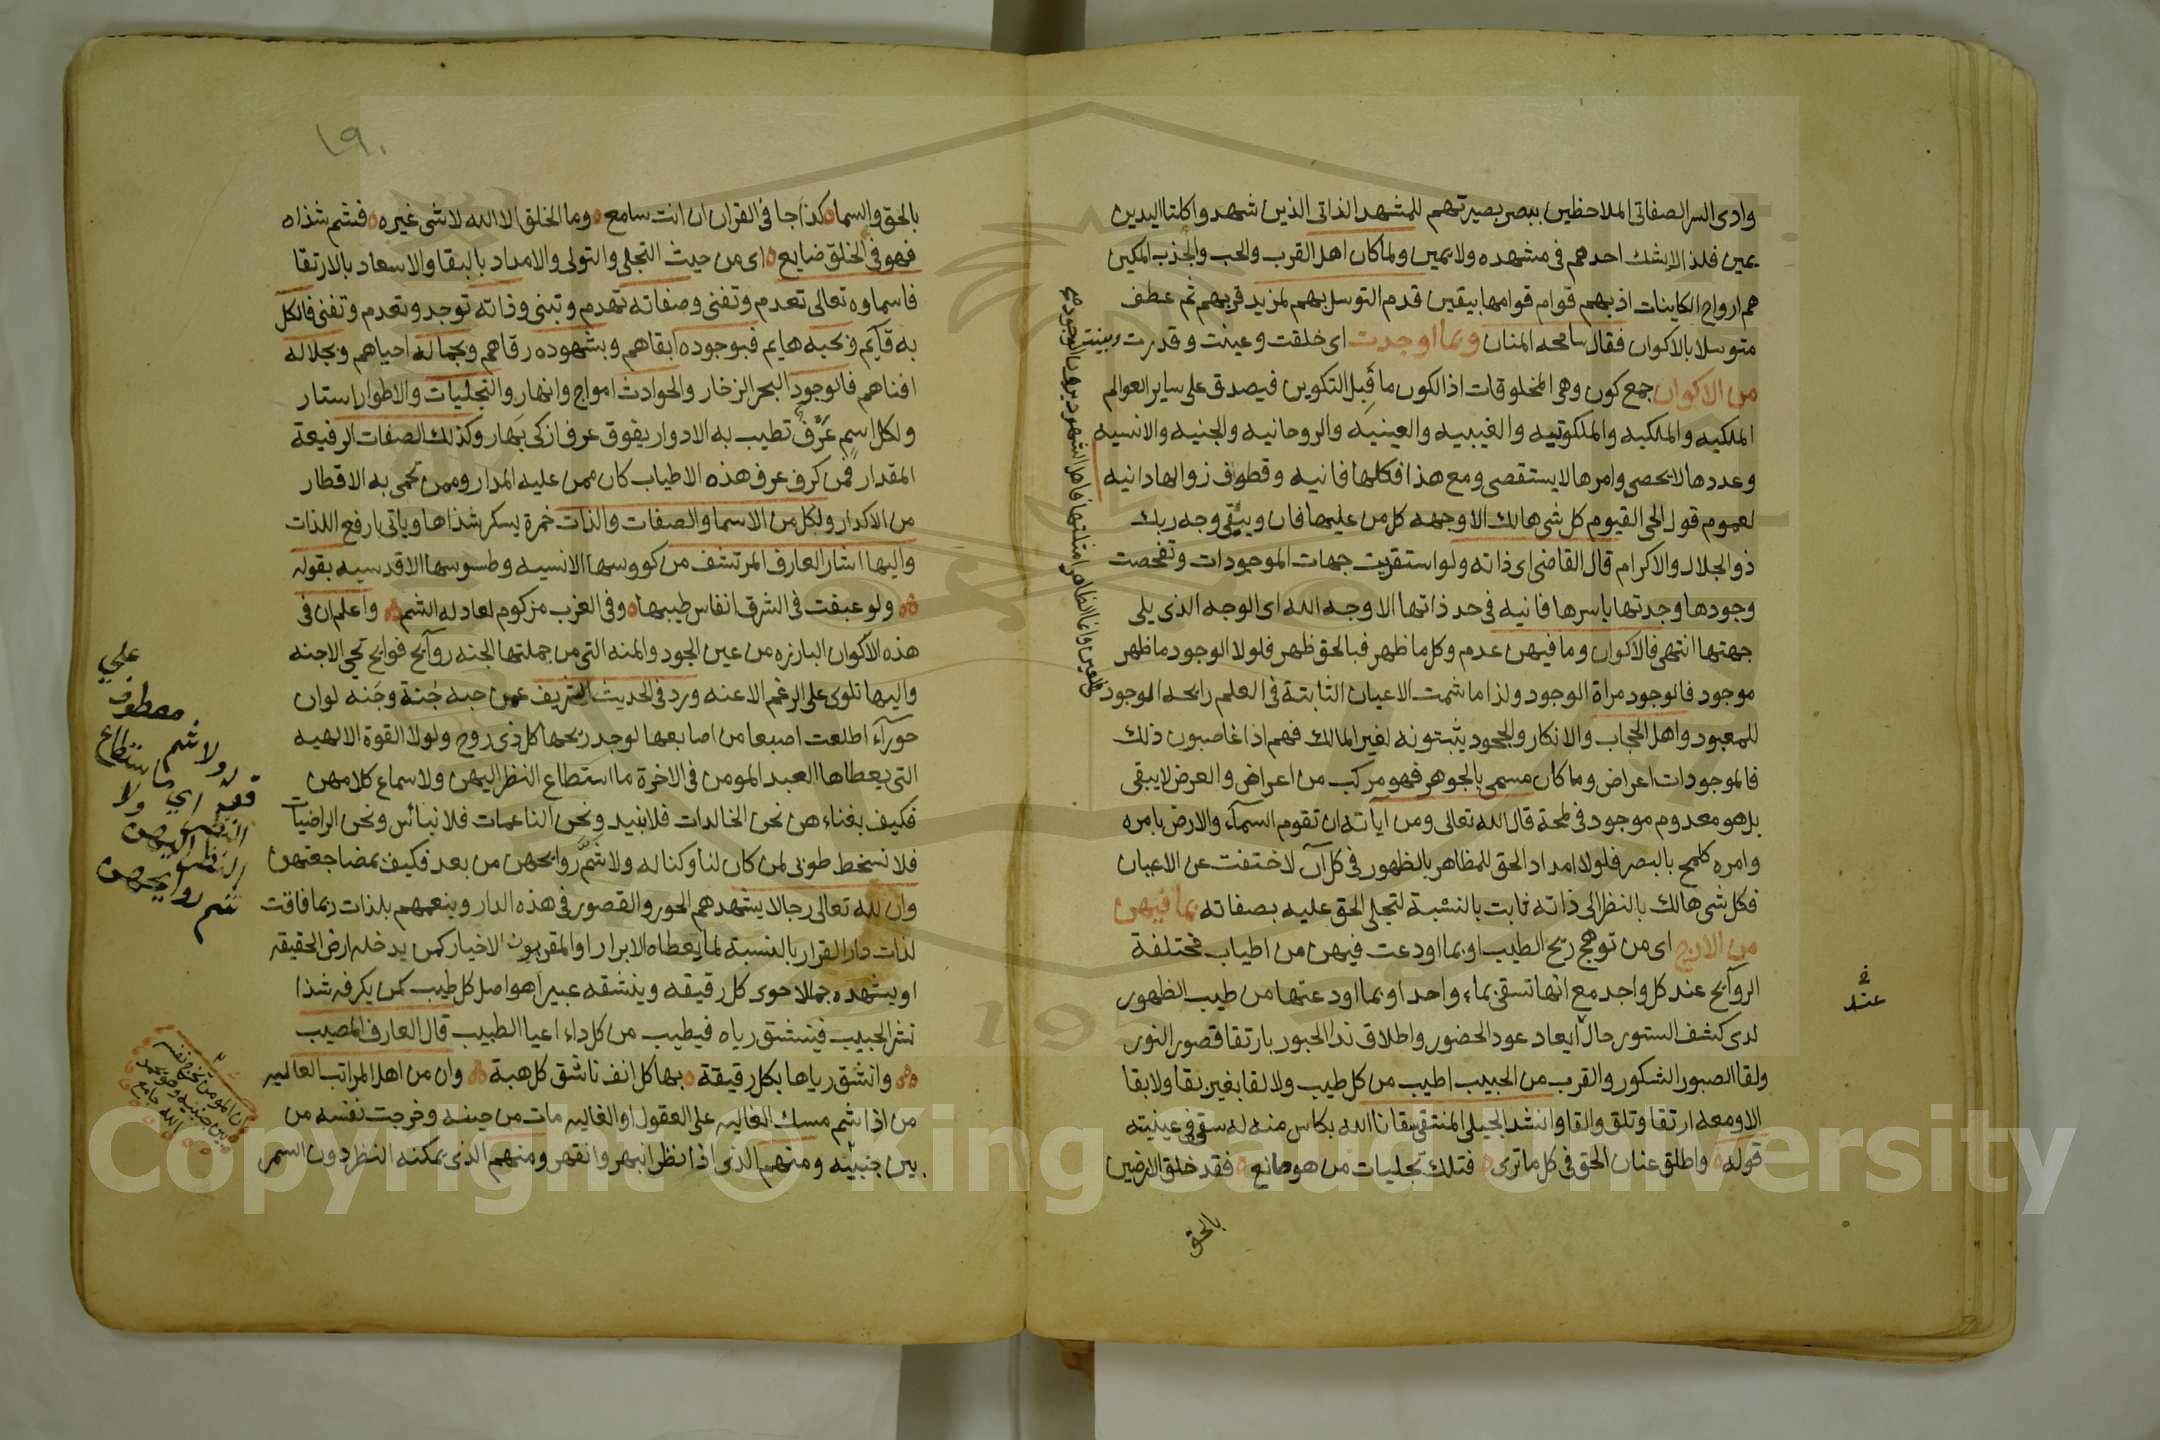 وادى السر الصفاتى الملاحظين ببصر بصيرتهم للمشهد الذاتى الذين شهدوا كلتا اليدين
يمين فلذا لا يشك احدهم فى مشهده ولا يمين ولما كان اهل القرب والحب والجذب المكين
هم ارواح الكاينات اذ بهم قوام قوامها بيقين قدم التوسل بهم لمزيد قربهم ثم عطف
متوسلا بالاكوان فقال سامحه المنان وبما اوجدت اى خلقت وعينت وقدرت وبينت
من الاكوان جمع كون وهى المخلوقات اذ الكون ما قبل التكوين فيصدق على ساير العوالم
الملكيه والملكيه والملكوتيه والغيبيه والعينيه والروحانيه والجنيه والانسيه
وعددها لا يحصى وامرها لا يستقصى ومع هذا فكلها فانيه وقطوف زوالها دانيه
لعموم قول الحى القيوم كل شى هالك الا وجهه كل من عليها فان ويبقى وجه ربك
ذو الجلال والاكرام قال القاضى اى ذاته ولو استقريت جهات الموجودات وتفحصت
وجودها وجدتها باسرها فانيه فى حد ذاتها الا وجه الله اى الوجه الذى يلى
جهتها انتهى فالاكوان وما فيهن عدم وكل ما ظهر فبالحق ظهر فلولا الوجود ما ظهر
موجود فالوجود مراة الوجود ولذا ما شمت الاعيان الثابتة فى العلم رايحه الوجود
للمعبود واهل الحجاب والانكار والجحود يثبتونه لغير المالك فهم اذا غاصبون ذلك
فالموجودات اعراض وما كان مسمى بالجوهر فهو مركب من اعراض والعرض لا يبقى
بل هو معدوم موجود فى لمحة قال الله تعالى ومن آياته ان تقوم السمآء والارض بامره
وامره كلمح بالبصر فلولا امداد الحق للمظاهر بالظهور فى كل آن لاختفت عن الاعيان
فكل شى هالك بالنظر الى ذاته ثابت بالنسبة لتجلى الحق عليه بصفاته بما فيهن
من الاريج اى من توهج ريح الطيب او بما اودعت فيهن من اطياب مختلفة
الروآيح عند كل واجد مع انها تسقى بماء واحد او بما اودعتها من طيب الظهور
لدى كشف الستور حال ايعاد عود الحضور واطلاق ند الحبور بارتقا قصور النور
ولقا الصبور الشكور والقرب من الحبيب اطيب من كل طيب ولا لقا بغير نقا ولا بقا
الا ومعه ارتقا وتلق والقا وانشد الجيلى المنتقى سقانا الله بكاس منه له سقى فى عينيته
قوله واطلق عنان الحق فى كل ما ترى فتلك تجليات من هو صانع فقد خلق الارضين
بالحق
عند
بالحق والسما كذا جا فى القران ان انت سامع وما الخلق الا الله لا شى غيره فشم شذاه
فهو فى الخلق ضايع اى من حيث التجلى والتولى والامداد بالبقا والاسعاد بالارتقا
فاسماوه تعالى تعدم وتفنى وصفاته تهدم وتبنى وذاته توجد وتعدم وتفنى فالكل
به قآيم وبحبه هايم فبوجوده ابقاهم وبشهوده رقاهم وبجماله احياهم وبجلاله
افناهم فالوجود البحر الزخار والحوادث امواج وانهار والتجليات والاطوار استار
ولكل اسم عرف تطيب به الادوار يفوق عرفا زكى بهار وكذلك الصفات الرفيعة
المقدار فمن كرف عرف هذه الاطياب كان ممن عليه المدار وممن تحمى به الاقطار
من الاكدار ولكل من الاسما والصفات والذات خمرة يسكر شذاها وياتى بارفع اللذات
واليها اشار العارف المرتشف من كووسها الانسيه وطسوسها الاقدسيه بقوله
ولو عبقت فى الشرق انفاس طيبها وفى الغرب مزكوم لعاد له الشم واعلم ان فى
هذه الاكوان البارزه من عين الجود والمنه التى من جملتها الجنه روآيح فوايح تحيى الاجنه
واليها تلوى على الرغم الاعنه ورد فى الحديث الشريف عمن حبه جنة وجنه لو ان
حورآء اطلعت اصبعا من اصابعها لوجد ريحها كل ذى روح ولولا القوة الالهيه
التى يعطاها العبد المومن فى الاخرة ما استطاع النظر اليهن ولا سماع كلامهن
فكيف بغناءهن نحن الخالدات فلا نبيد ونحن الناعمات فلا نبائس ونحن الراضيات
فلا نسخط طوبى لمن كان لنا وكنا له ولا شم روايحهن من بعد فكيف بمضاجعتهن
وان لله تعالى رجالا يشهدهم الحور والقصور فى هذه الدار وينعمهم بلذات ربما فاقت
لذات دار القرار بالنسبة لما يعطاه الابرار او المقربون الاخيار كمن يدخله ارض الحقيقه
او يشهده جمالا حوى كل رقيقه وينشقه عبيرا هو اصل كل طيب كمن يكرفه شذا
نشر الحبيب فينتشق رياه فيطيب من كل داء اعيا الطبيب قال العارف المصيب
وانشق رياها بكل رقيقة بها كل انف ناشق كل هبة وان من اهل المراتب العاليه
من اذا شم مسك الغاليه على العقول او الغاليه مات من حينه وخرجت نفسه من
بين جنبيه ومنهم الذى اذا نظر انبهر وانقهر ومنهم الذى يمكنه النظر دون السمر
على
معطوف
قوله ولا شم
اي ما استطاع
النظر اليهن ولا
شم روايحهن